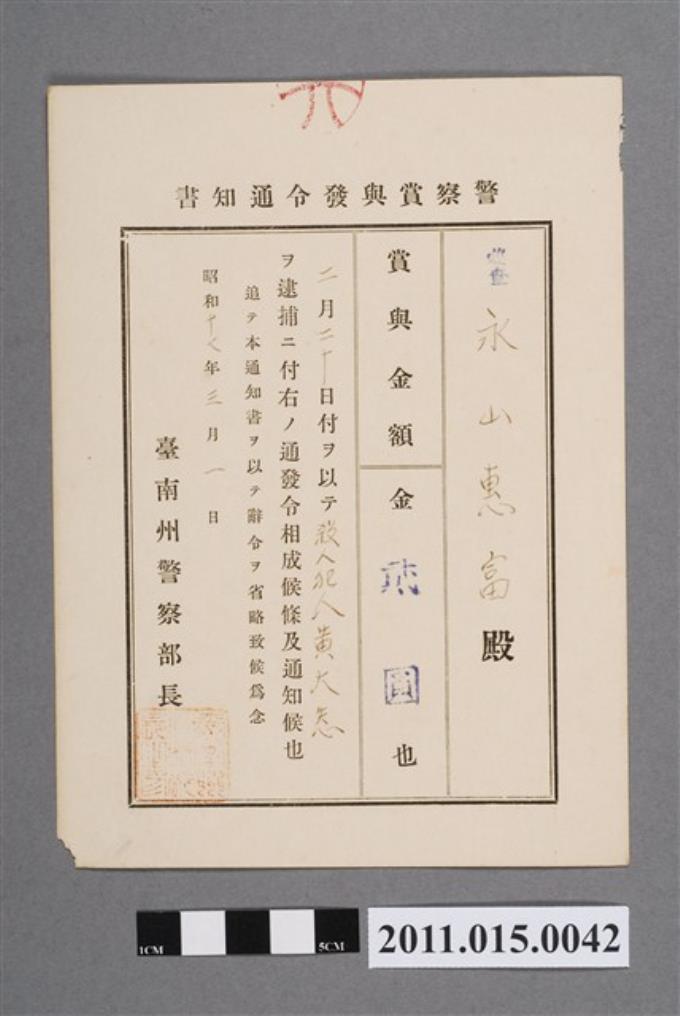 警察賞與發令通知書
永山惠富殿
賞與金額
金貳圓也
二月二十日付ヲ以テ殺人犯人黄大
ヲ逮捕ニ付右ノ通發令相成候條及通知候也
追テ本通知書ヲ以テ辭令ヲ省略致候爲念
昭和十七年三月一日
臺南州警察部長
1CM
5CM
2011.015.0042